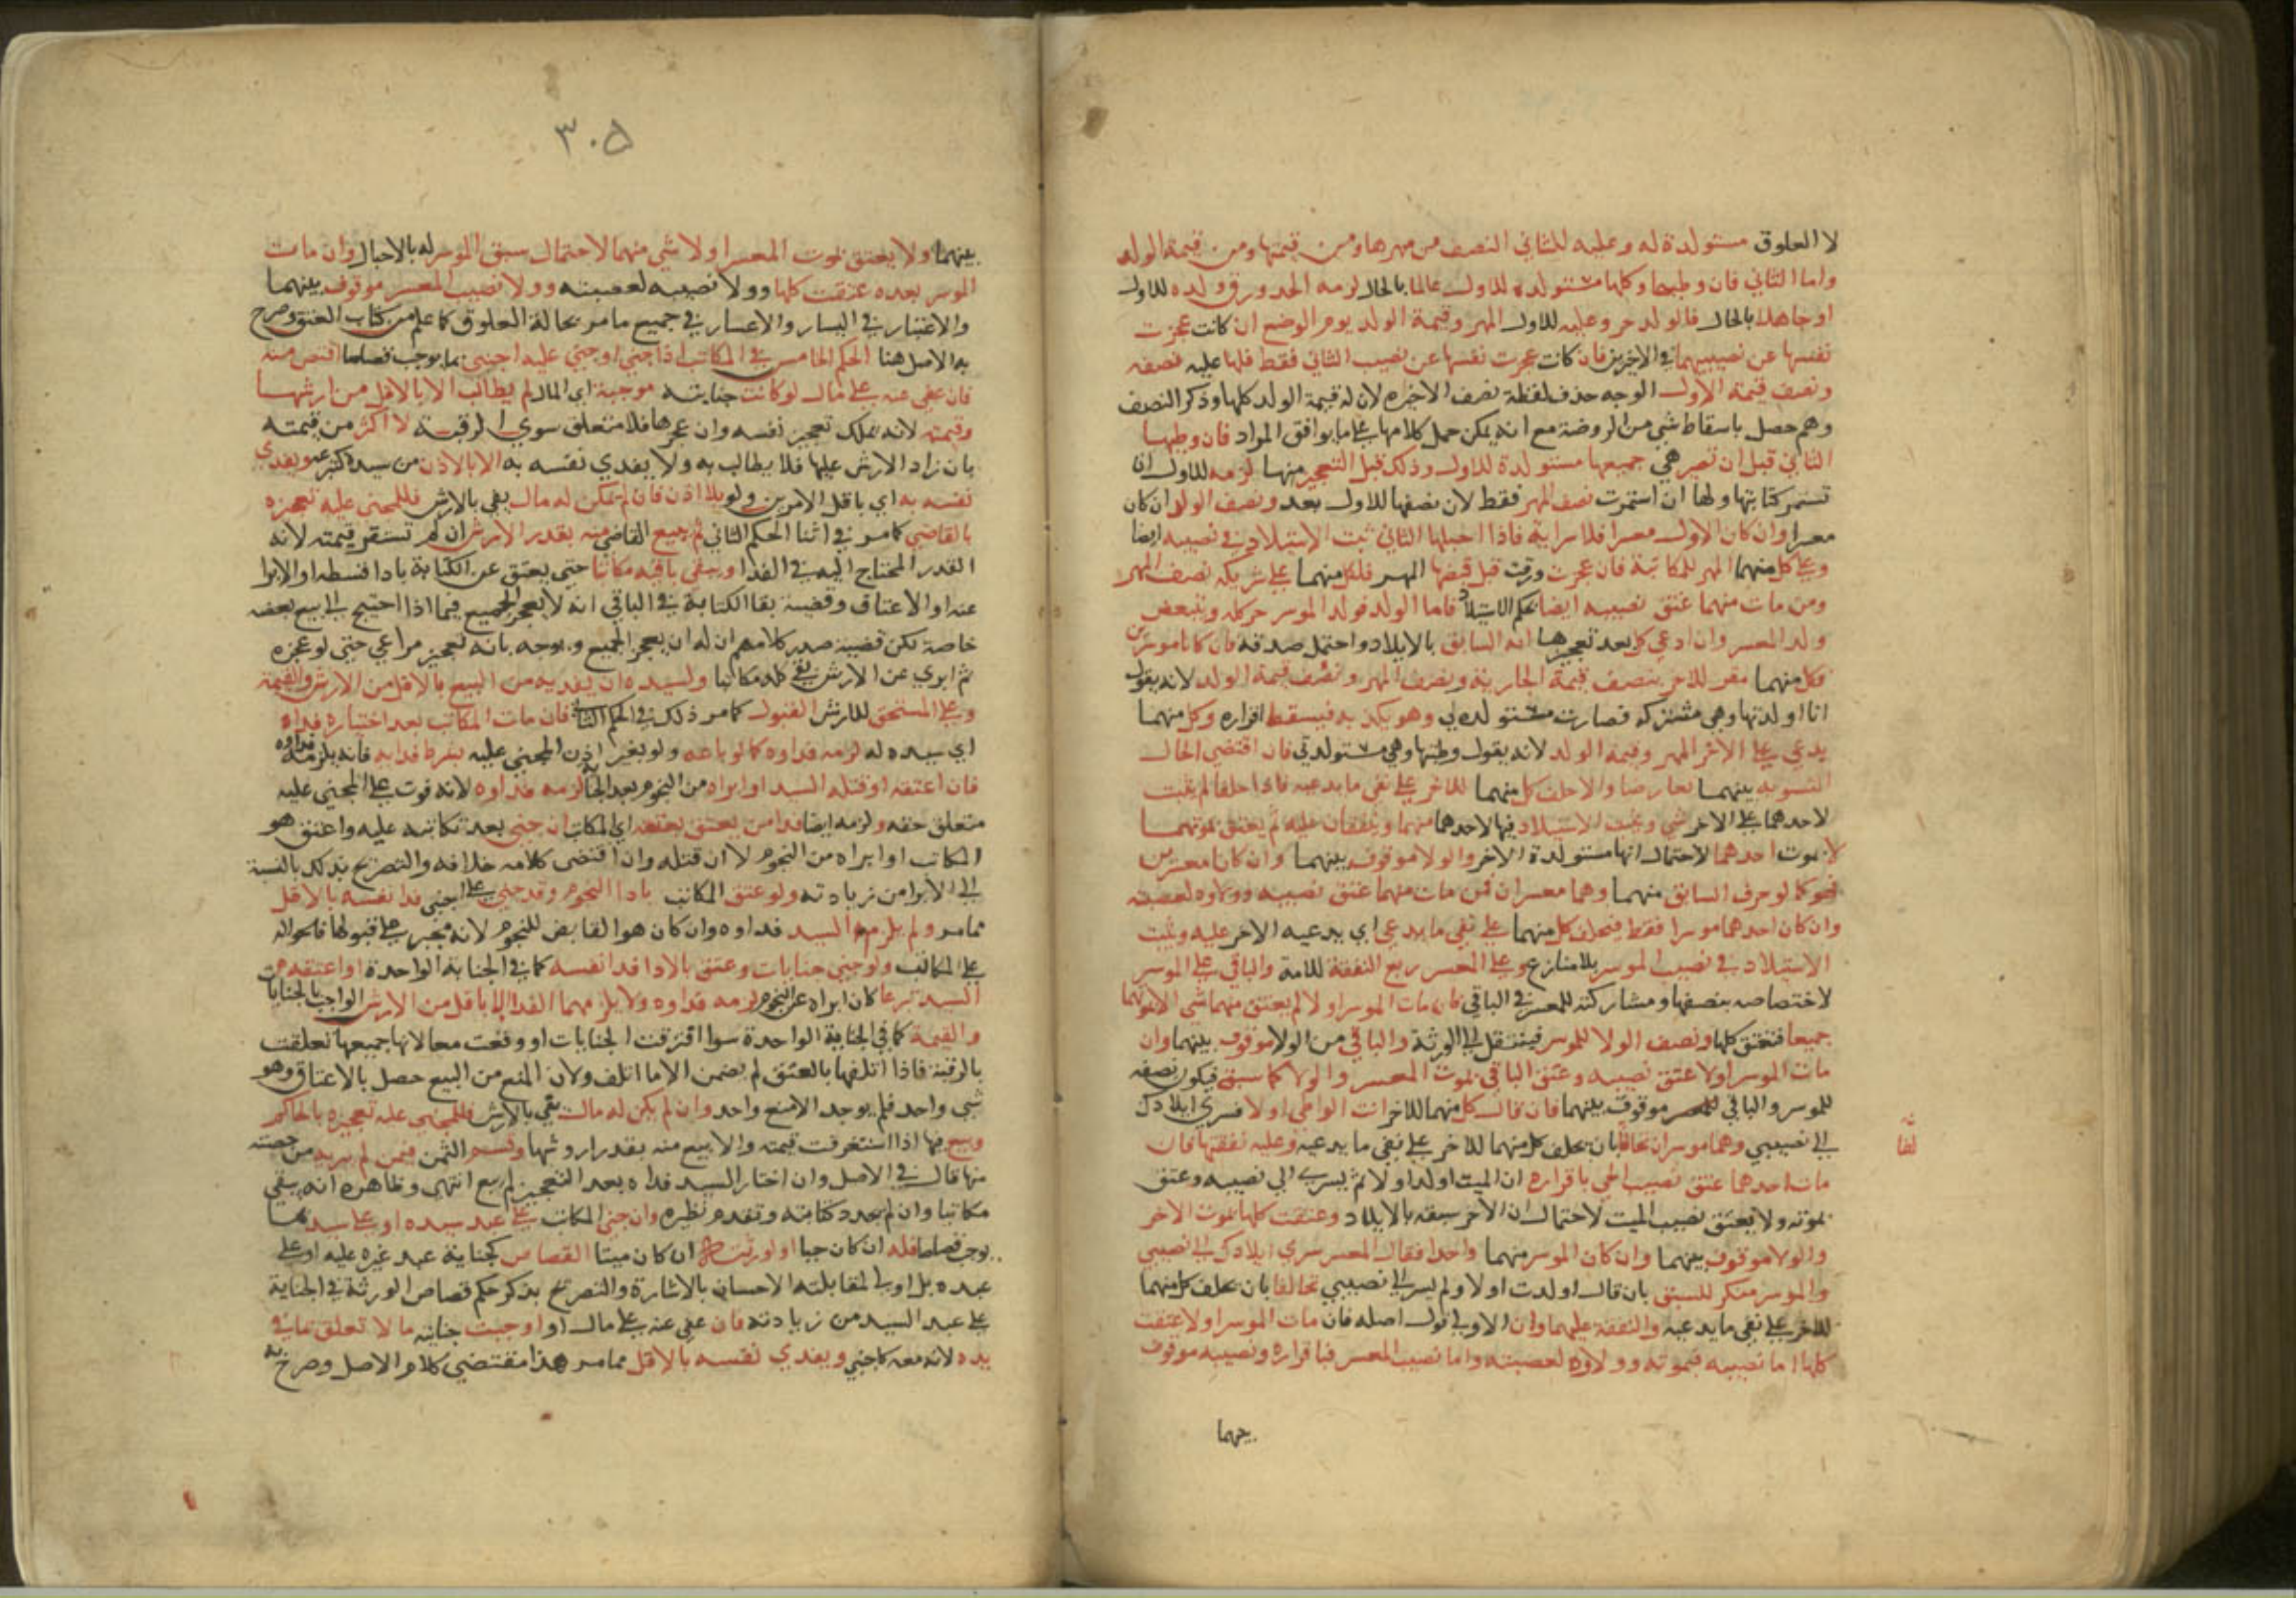 لا العلوق مستولدة له وعليه للثاني النصف من مهرها ومن قيمتها ومن قيمة الولد
واما الثاني فان وطيها وكلها مستولدة للاول عالما بالحال لزمه الحد ورق ولده للاول
او جاهلا بالحال فالولد حر وعليه للاول المهر وقيمة الولد يوم الوضع ان كانت عجزت
نفسها عن نصيبيهما في الاخريز فان كانت عجزت نفسها عن نصيب الثاني فقط فلها عليه نصفه
ونصف قيمة الاول الوجه حذف لفظة نصف الاخيره لان له قيمة الولد كلها وذكر النصف
وهم حصل باسقاط شي من الروضة مع انه يمكن حمل كلامها على ما يوافق المراد فان وطيها
الثاني قبل ان تصير هي جميعها مستولدة للاول وذلك قبل التعجيز منهما لزمه للاول اذا
تستمر كتابتها ولها ان استمرت نصف المهر فقط لان نصفها للاول بعد ونصف الولد ان كان
معسرا وان كان الاول معسرا فلا سراية فاذا احبلها الثاني ثبت الاستيلاد في نصيبه ايضا
وعلى كل منهما المهر للمكاتبة فان عجزت ورقت قبل قبضها المهر فلكل منهما على شريكه نصف المهر
ومن مات منهما عتق نصيبه ايضا بحكم الاستيلاد فاما الولد فولد الموسر حر كله ويتبعض
ولد المعسر وان ادعى كل بعد تعجيزها انه السابق بالايلاد واحتمل صدقه فان كانا موسرين
فكل منهما مقر للاخر بنصف قيمة الجارية ونصف المهر ونصف قيمة الولد لانه يقول
انا اولدتها وهي مشتركه فصارت مستولدة لي وهو يكذبه فيسقط اقراره وكل منهما
يدعي على الاخر المهر وقيمة الولد لانه يقول وطيتها وهي مستولدتي فان اقتضى الحال
التسويه بينهما تعارضا والا حلف كل منهما للاخر على نفي ما يدعيه فاذا حلفا لم يثبت
لاحدهما على الاخر شي ويثبت الاستيلاد فيها لاحدهما منهما وينفقان عليه ثم يعتق بموتهما
لا بموت احدهما لاحتمال انها مستولدة الاخر والولا موقوف بينهما وان كانا معسرين
فهو كما لو عرف السابق منهما وهما معسران فمن مات منهما عتق نصيبه وولاوه لعصبته
وان كان احدهما موسرا فقط فيحلف كل منهما على نفي ما يدعى اي يدعيه الاخر عليه ويثبت
الاستيلاد في نصيب الموسر بلا منازع وعلى المعسر ربع النفقة للامة والباقي على الموسر
لاختصاصه بنصفها ومشاركته للمعسر في الباقي فان مات الموسر اولا لم يعتق منهما شي الا بموتهما
جميعا فتعتق كلها ونصف الولا للموسر فينتقل الى الورثة والباقي من الولا موقوف بينهما وان
مات الموسر اولا عتق نصيبه وعتق الباقي بموت المعسر والولا كما سبق فيكون نصفه
للموسر والباقي للمعسر موقوف بينهما فان قال كل منهما للاخر انت الواطي اولا فسرى ايلادك
الى نصيبي وهما موسران تحالفا بان يحلف كل منهما للاخر على نفي ما يدعيه وعليه نفقتها فان
مات احدهما عتق نصيب الحي باقراره ان الميت اولد اولا ثم يسري الى نصيبه وعتق
بموته ولا يعتق نصيب الميت لاحتمال ان الاخر سبقه بالايلاد وعتقت كلها بموت الاخر
والولا موقوف بينهما وان كان الموسر منهما واحدا فقال المعسر سرى ايلادك الى نصيبي
والموسر منكر للسبق بان قال اولدت اولا ولم يسر الى نصيبي تحالفا بان يحلف كل منهما
للاخر على نفي ما يدعيه والنفقة عليهما وان الاولى قول اصله فان مات الموسر اولا عتقت
كلها اما نصيبه فبموته وولاوه لعصبته واما نصيب المعسر فباقراره ونصيبه موقوف
بينهما
لفا
٣٠٥
بينهما ولا يعتق بموت المعسر اولا شي منهما لاحتمال سبق الموسر له بالاحبال وان مات
الموسر بعده عتقت كلها وولا نصيبه لعصبته وولا نصيب المعسر موقوف بينهما
والاعتبار في اليسار والاعسار في جميع ما مر بحالة العلوق كما علم من كتاب العتق وصرح
به الاصل هنا الحكم الخامس في المكاتب اذا جنى او جني عليه اجنبي بما يوجب قصاصا اقتص منه
فان عفي عنه على مال او كانت جنايته موجبة اي المال لم يطالب الا بالاقل من ارشها
وقيمته لانه يملك تعجيز نفسه وان عجزها فلا متعلق سوى الرقبة لا اكثر من قيمته
بان زاد الارش عليها فلا يطالب به ولا يفدي نفسه به الا بالاذن من سيده كتبرعه ويفدي
نفسه به اي باقل الامرين ولو بلا اذن فان لم يكن له مال يفي بالارش فللمجني عليه تعجيزه
بالقاضي كما مر في اثنا الحكم الثاني ثم يبيع القاضي منه بقدر الارش ان لم تستغرق قيمته لانه
القدر المحتاج اليه في الفدا ويبقى باقيه مكاتبا حتى يعتق عن الكتابة بادا قسطه او الابرا
عنه او الاعتاق وقضية بقا الكتابة في الباقي انه لا يعجز الجميع فيما اذا احتيج الى بيع بعضه
خاصة لكن قضية صدر كلامهم ان له ان يعجز الجميع ويوجه بانه تعجيز مراعي حتى لو عجزه
ثم ابري عن الارش بقي كله مكاتبا ولسيده ان يفديه من البيع بالاقل من الارش والقيمة
وعلى المستحق للارش القبول كما مر ذلك في الحكم الثاني فان مات المكاتب بعد اختياره فداه
اي سيده له لزمه فداوه كما لو باعه ولو بغير اذن المجني عليه بشرط فدايه فانه يلزمه فداوه
فان اعتقه او قتله السيد او ابراه من النجوم بعد الجناية لزمه فداوه لانه فوت على المجني عليه
متعلق حقه ولزمه ايضا فدا من يعتق بعتقه اي المكاتب ان جنى بعد تكاتبه عليه واعتق هو
المكاتب او ابراه من النجوم لا ان قتله وان اقتضى كلامه خلافه والتصريح بذلك بالنسبة
الى الابرا من زيادته ولو عتق المكاتب بادا النجوم وقد جنى على اجنبي فدا نفسه بالاقل
مما مر ولم يلزم السيد فداوه وان كان هو القابض للنجوم لانه مجبر على قبولها فالحواله
على المكاتب ولو جنى جنايات وعتق بالادا فدا نفسه كما في الجناية الواحدة او اعتقه
السيد تبرعا كان ابراه عن النجوم لزمه فداوه ولا يلزمهما الفدا الا باقل من الارش الواجب بالجنايات
والقيمة كما في الجناية الواحدة سوا افترقت الجنايات او وقعت معا لانها جميعها تعلقت
بالرقبة فاذا اتلفها بالعتق لم يضمن الا ما اتلف ولان المنع من البيع حصل بالاعتاق وهو
شي واحد فلم يوجد الا منع واحد وان لم يكن له مال يفي بالارش فللمجني عليه تعجيزه بالحاكم
وبيع فيها اذا استغرقت قيمته والا بيع منه بقدر اروشها وقسم الثمن فمن لم يبريه من حصته
منها قال في الاصل وان اختار السيد فداه بعد التعجيز لم يبع انتهى وظاهره انه يبقى
مكاتبا وان لم يجدد كتابته وتقدم نظيره وان جنى المكاتب على عبد سيده او على سيده بما
يوجب قصاصا فله ان كان حيا او لورثته ان كان ميتا القصاص كجناية عبد غيره عليه او على
عبده بل اولى لمقابلته الاحسان بالاشارة والتصريح بذكر حكم قصاص الورثة في الجناية
على عبد السيد من زيادته فان عفى عنه على مال او اوجبت جنايته مالا تعلق بما في
يده لانه معه كاجنبي ويفدي نفسه بالاقل مما مر هذا مقتضى كلام الاصل وصرح به